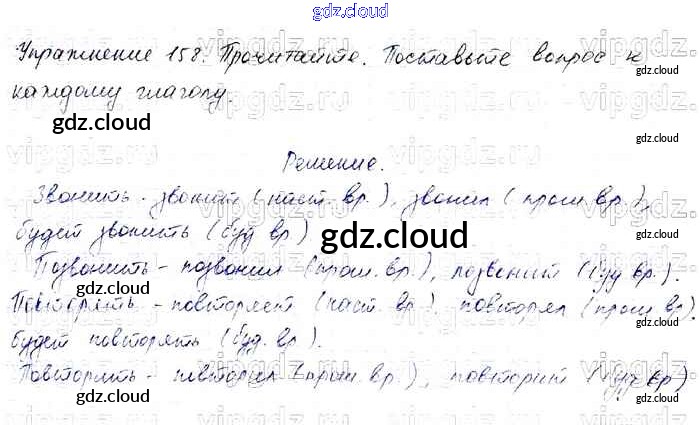 gdz.cloud
Упражнение 158. Прочитайте. Поставьте вопрос к
gdz.cloud
каждому глаголу.
gdz.cloud
gdz.cloud
Решение.
Звонить - звонит (наст. вр.), звонил (прош. вр.),
gdz.cloud
будет звонить (буд. вр.)
gdz.cloud
Позвонить - позвонил (прош. вр.), позвонит (буд. вр.).
Повторять - повторяет (наст. вр.), повторял (прош. вр.),
gdz.cloud
будет повторять (буд. вр.).
gdz.cloud
Повторить - повторил (прош. вр.), повторит (буд. вр.)
gdz.cloud
gdz.cloud